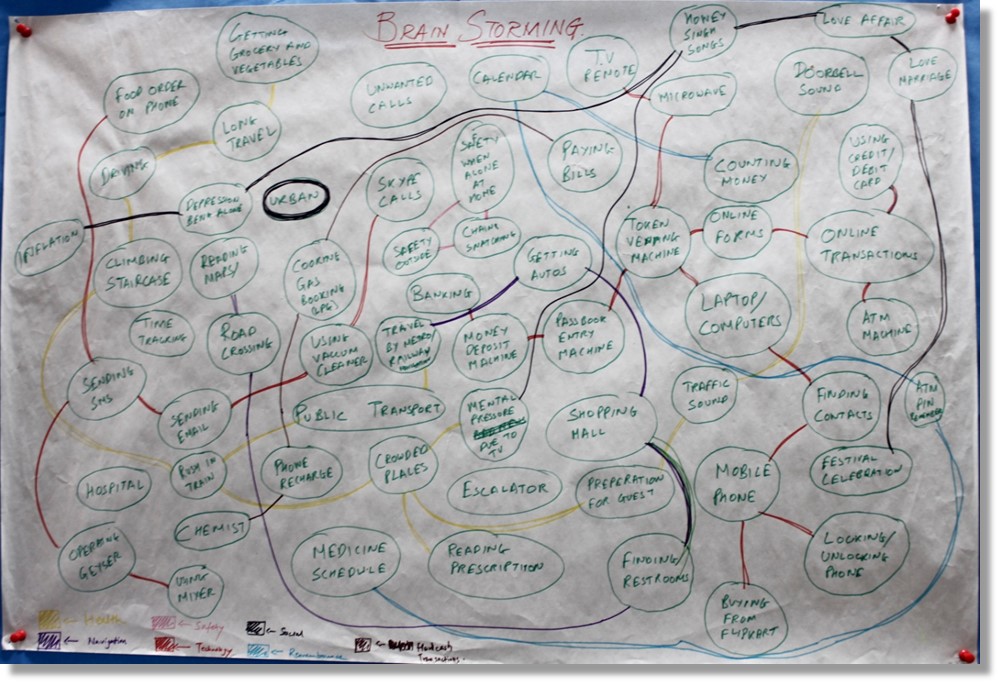 BRAIN STORMING.
GETTING
GROCERY AND
VEGETABLES
FOOD ORDER
ON PHONE
LONG
TRAVEL
UNWANTED
CALLS
CALENDAR
T.V
REMOTE
HONEY
SINGH
SONGS
LOVE AFFAIR
LOVE
MARRIAGE
MICROWAVE
DOORBELL
SOUND
DRIVING
DEPRESSION
BEING ALONE
URBAN
SKYPE
CALLS
SAFETY
WHEN
ALONE
AT
HOME
PAYING
BILLS
COUNTING
MONEY
USING
CREDIT/
DEBIT
CARD
INFLATION
CLIMBING
STAIRCASE
READING
MAPS/
COOKING
GAS
BOOKING
(LPG)
SAFETY
OUTSIDE
CHAIN
SNATCHING
GETTING
AUTOS
TOKEN
VENDING
MACHINE
ONLINE
FORMS
ONLINE
TRANSACTIONS
BANKING
LAPTOP/
COMPUTERS
ATM
MACHINE
TIME
TRACKING
ROAD
CROSSING
USING
VACCUM
CLEANER
TRAVEL
BY METRO/
RAILWAY
MONEY
DEPOSIT
MACHINE
PASSBOOK
ENTRY
MACHINE
SENDING
SMS
SENDING
EMAIL
PUBLIC TRANSPORT
MENTAL
PRESSURE
DUE TO
TV
SHOPPING
MALL
TRAFFIC
SOUND
FINDING
CONTACTS
ATM
PIN
HOSPITAL
RUSH IN
TRAIN
PHONE
RECHARGE
CROWDED
PLALES
ESCALATOR
PREPARATION
FOR GUEST
MOBILE
PHONE
FESTIVAL
CELEBRATION
CHEMIST
OPERATING
GEYSER
USING
MIXER
MEDICINE
SCHEDULE
READING
PRESCRIPTION
FINDING
RESTROOMS
LOCKING/
UNLOCKING
PHONE
BUYING
FROM
FLIPKART
← Health
← Safety
← Social
← Navigation
← Technology
← Remembrance
Transactions.